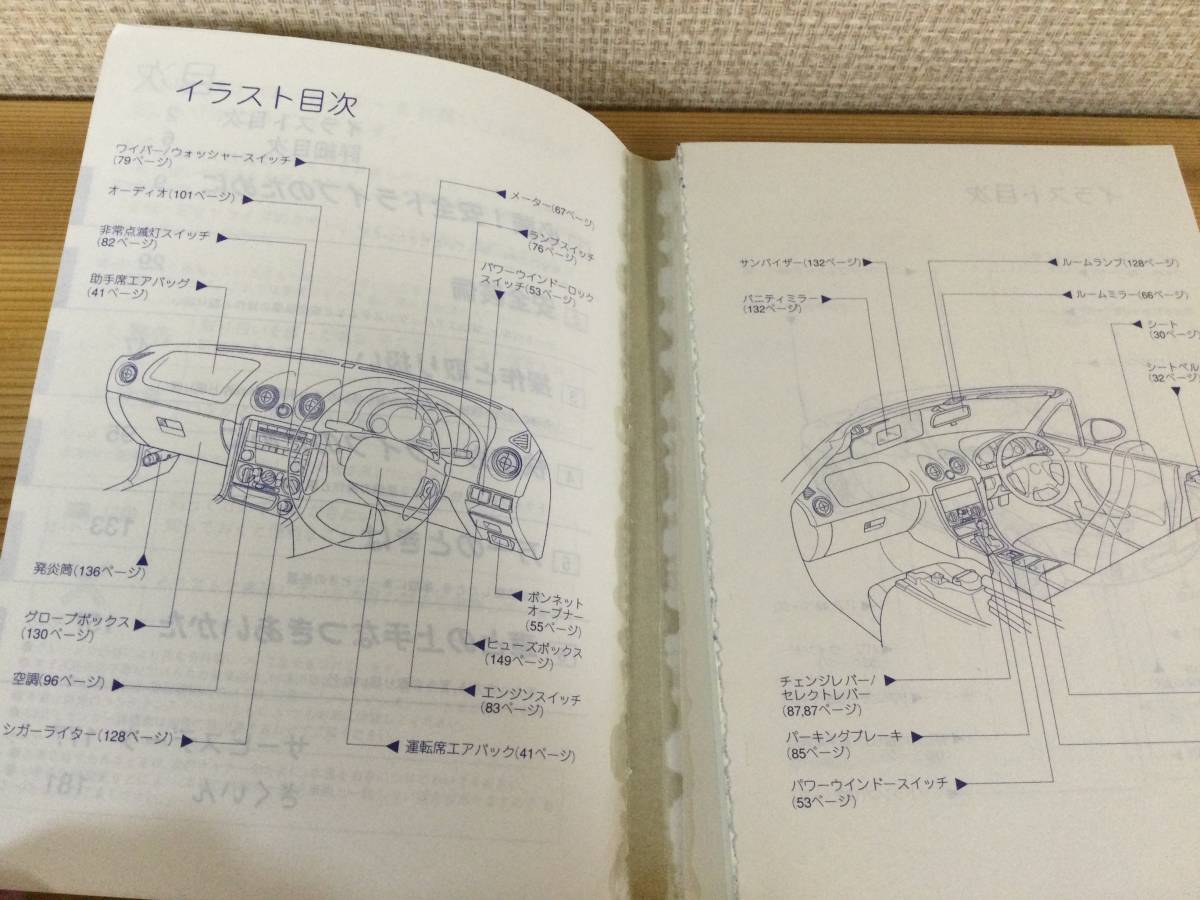 イラスト目次
ワイパー/ウォッシャースイッチ
(79ページ)
オーディオ(101ページ)
非常点滅灯スイッチ
(82ページ)
助手席エアバッグ
(41ページ)
メーター(67ページ)
ランプスイッチ
(76ページ)
パワーウインドーロック
スイッチ(53ページ)
発炎筒(136ページ)
グローブボックス
(130ページ)
空調(96ページ)
シガーライター(128ページ)
ボンネット
オープナー
(55ページ)
ヒューズボックス
(149ページ)
エンジンスイッチ
(83ページ)
運転席エアバッグ(41ページ)
サンバイザー(132ページ)
バニティミラー
(132ページ)
ルームランプ(128ページ)
ルームミラー(66ページ)
シート
(30ページ)
シートベル
(32ページ)
チェンジレバー/
セレクトレバー
(87,87ページ)
パーキングブレーキ
(85ページ)
パワーウインドースイッチ
(53ページ)